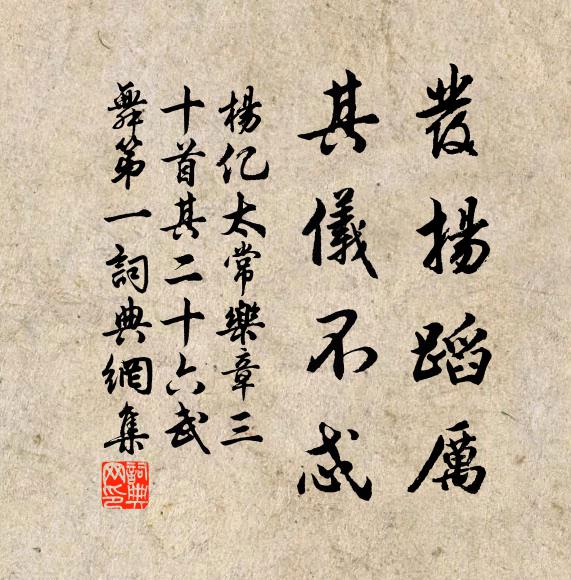 發揚蹈厲
其儀不忒
楊億太常樂章三
十首其二十六武
舞第一詞典網集
詞典
网印